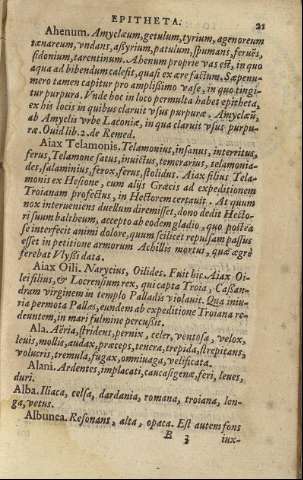 EPITHETA. 21
Ahenum. Amyclæum, getulum, tyrium, agenoreum
tænareum, vndans, aßyrium, patulum, spumans, feruēs,
sidonium, tarentinum. Ahenum proprie vas est, in quo
aqua ad bibendum calefit, quasi ex ære factum. Sæpenu-
mero tamen capitur pro amplissimo vase, in quo tingi-
tur purpura. Vnde hoc in loco permulta habet epitheta,
ex his locis in quibus claruit vsus purpuræ. Amyclæū,
ab Amyclis vrbe Laconiæ, in qua claruit vsus purpu-
ræ. Ouid lib. 2. de Remed.
Aiax Telamonis. Telamonius, insanus, interritus,
ferus, Telamone satus, inuictus, temerarius, telamonia-
des, salaminius, ferox, ferus, stolidus. Aiax filius Tela-
monis ex Hesione, cum aliis Græcis ad expeditionem
Troianam profectus, in Hectorem certauit. At quum
nox interueniens duellum diremisset, dono dedit Hecto-
ri suum baltheum, accepto ab eodem gladio, quo posteà
se interfecit animi dolore, quum scilicet repulsam passus
esset in petitione armorum Achillis mortui, quæ ægrè
ferebat Vlyssi data.
Aiax Oili. Narycius, Oilides. Fuit hic Aiax Oi-
lei filius, & Locrensium rex, qui capta Troia, Cassan-
dram virginem in templo Palladis violauit. Qua iniu-
ria permota Pallas, eundem ab expeditione Troiana re-
deuntem, in mari fulmine percußit.
Ala. Aëria, stridens, pernix, celer, ventosa, velox,
leuis, mollis, audax, præceps, tenera, trepida, strepitans,
volucris, tremula, fugax, omniuaga, velificata.
Alani. Ardentes, implacati, caucasigenæ, feri, leues,
duri.
Alba. Iliaca, celsa, dardania, romana, troiana, lon-
ga, vetus.
Albunea. Resonans, alta, opaca. Est autem fons
B 3 iux-